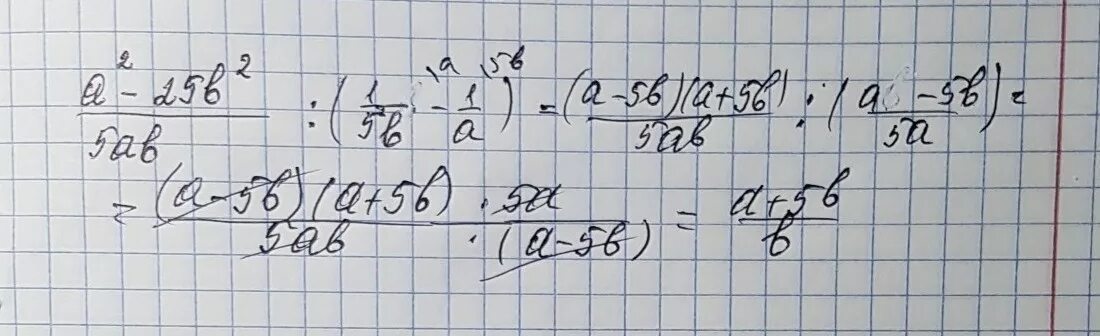 (a² - 25b²)/(5ab) : (1/(5b) \a - 1/a \5b) = ((a-5b)(a+5b))/(5ab) : ((a - 5b)/(5a)) =
= ((a-5b)(a+5b) · 5a)/(5ab · (a-5b)) = (a+5b)/b